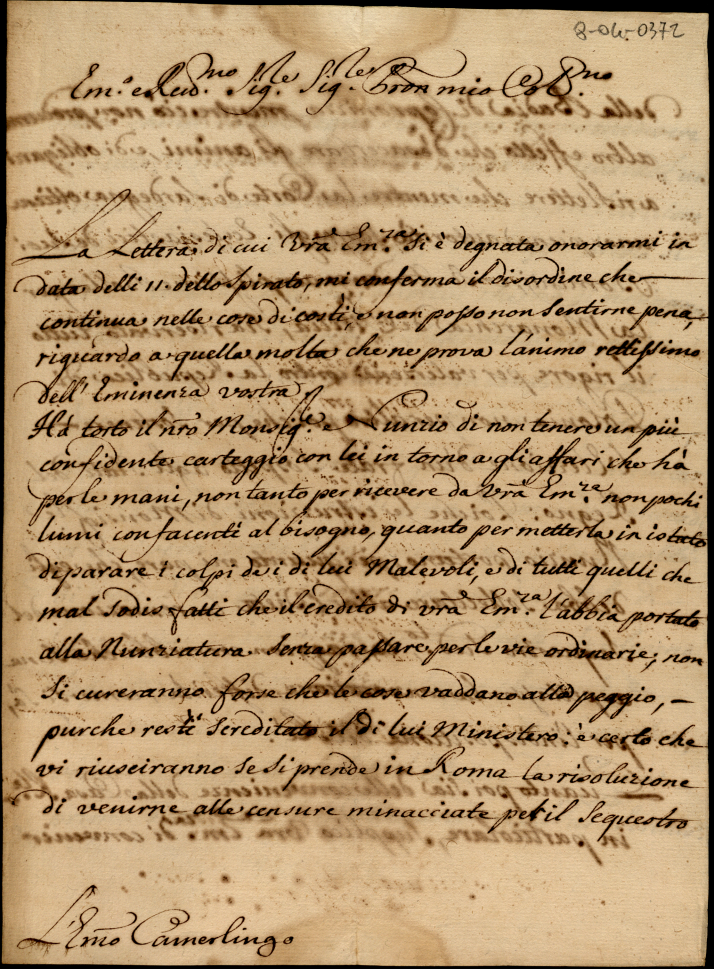 8-04-0372
Em.o e Reud.mo Sig.re Sig.re Pron mio Col.mo
La Lettera di cui Vrã Em.za si è degnata onorarmi in
data delli 11. dello spirato, mi conferma il disordine che
continua nelle cose di costì, e non posso non sentirne pena,
riguardo a quella molta che ne prova l'animo rettissimo
dell' Eminenza vostra
Hà torto il nrõ Monsig.re Nunzio di non tenere un più
confidente carteggio con lei in torno a gli affari che hà
per le mani, non tanto per ricevere da Vrã Em.za non pochi
lumi confacenti al bisogno, quanto per metterla in istato
di parare i colpi de i di lui Malevoli, e di tutti quelli che
mal sodisfatti che il credito di vrã Em.za l'abbia portato
alla Nunziatura senza passare per le vie ordinarie, non
si cureranno forse che le cose vaddano alla peggio, –
purche resti screditato il di lui Ministero: è certo che
vi riusciranno se si prende in Roma la risoluzione
di venirne alle censure minacciate per il sequestro
L'Em̃o Camerlingo